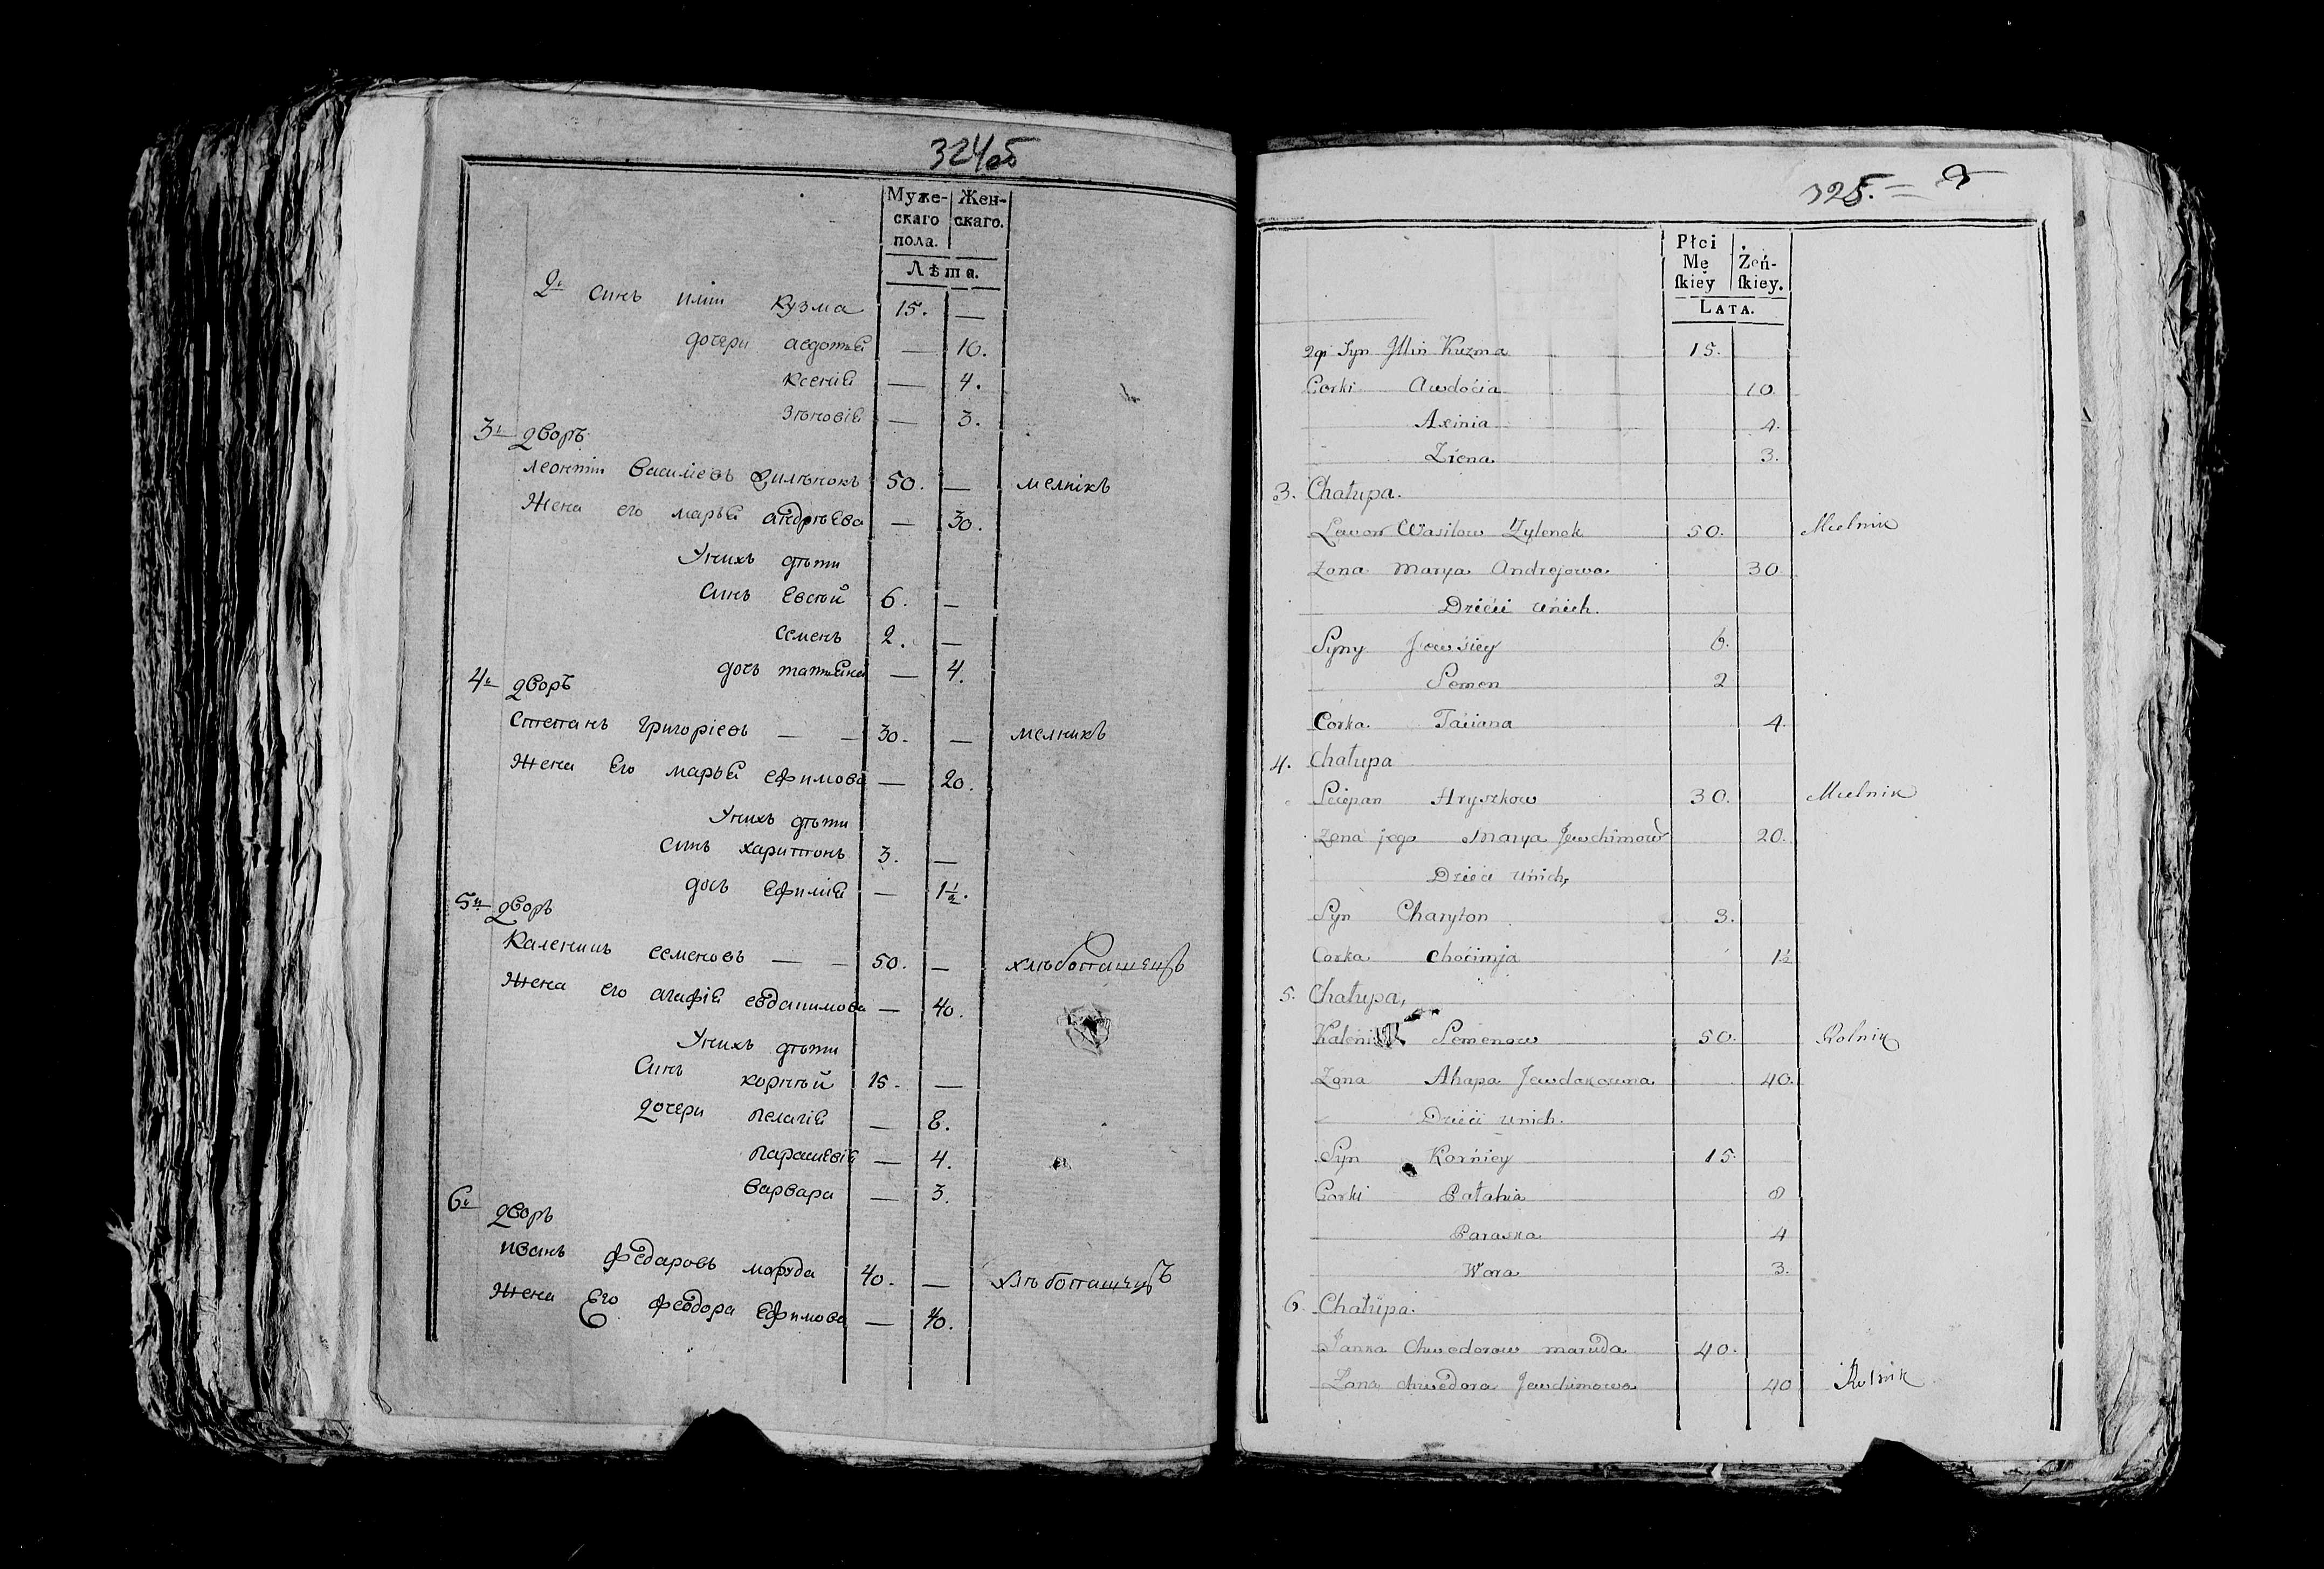 324об
Муже- Жен-
скаго скаго.
пола.
Лѣта.
2й синъ илiи Кузма 15. —
дочери авдотья — 10.
Ксения — 4.
Зѣновiя — 3.
3й дворъ
леонтiи Василiевъ Зилѣнокъ 50. — мелнiкъ
Жена его марья андрѣева — 30.
Унихъ дѣти
Синъ Евсѣй 6. —
Семенъ 2. —
дочъ татьяна — 4.
4й дворъ
Степанъ Григорiевъ — — 30. — мелникъ
Жена Его марья ефимова — 20.
Унихъ дѣти
Синъ харитонъ 3. —
дочъ Ефимiя — 1½.
5й дворъ
Каленикъ семеновъ — — 50. — хлѣбопашецъ
Жена его агафiя евдакимова — 40.
Унихъ дѣти
Синъ корнѣй 15. —
дочери пелагiя — 8.
парашевiя — 4.
варвара — 3.
6й дворъ
иванъ федаровъ маруда 40. — хлѣбопашецъ
Жена Его феодора Ефимова — 40.
325. =
Płci
Mę Żeń-
ſkiey ſkiey.
Lata.
2gi Syn Jllin Kuzma 15.
Corki Awdocia 10
Axinia 4.
Ziena 3.
3. Chałupa.
Lawon Wasilow Zylenok 50. Mielnik
Zona Marya Andrejowa 30
Dzieci unich.
Syny Jewsiey 6.
Semen 2
Corka Taciana 4.
4. Chałupa
Sciepan Hryszkow 30. Mielnik
Zona jego Marya Jewchimow 20.
Dzieci unich,
Syn Charyton 3.
Corka Choćimja 1½
5. Chałupa,
Kaleni Semenow 50. Rolnik
Zona Ahapa Jewdakowna 40.
Dzieci unich.
Syn Korniey 15.
Corki Pałahia 8
Paraska 4
Wara 3.
6. Chałupa.
Janka Chwedorow maruda 40.
Zona Chwedora Jewchimowa 40 Rolnik